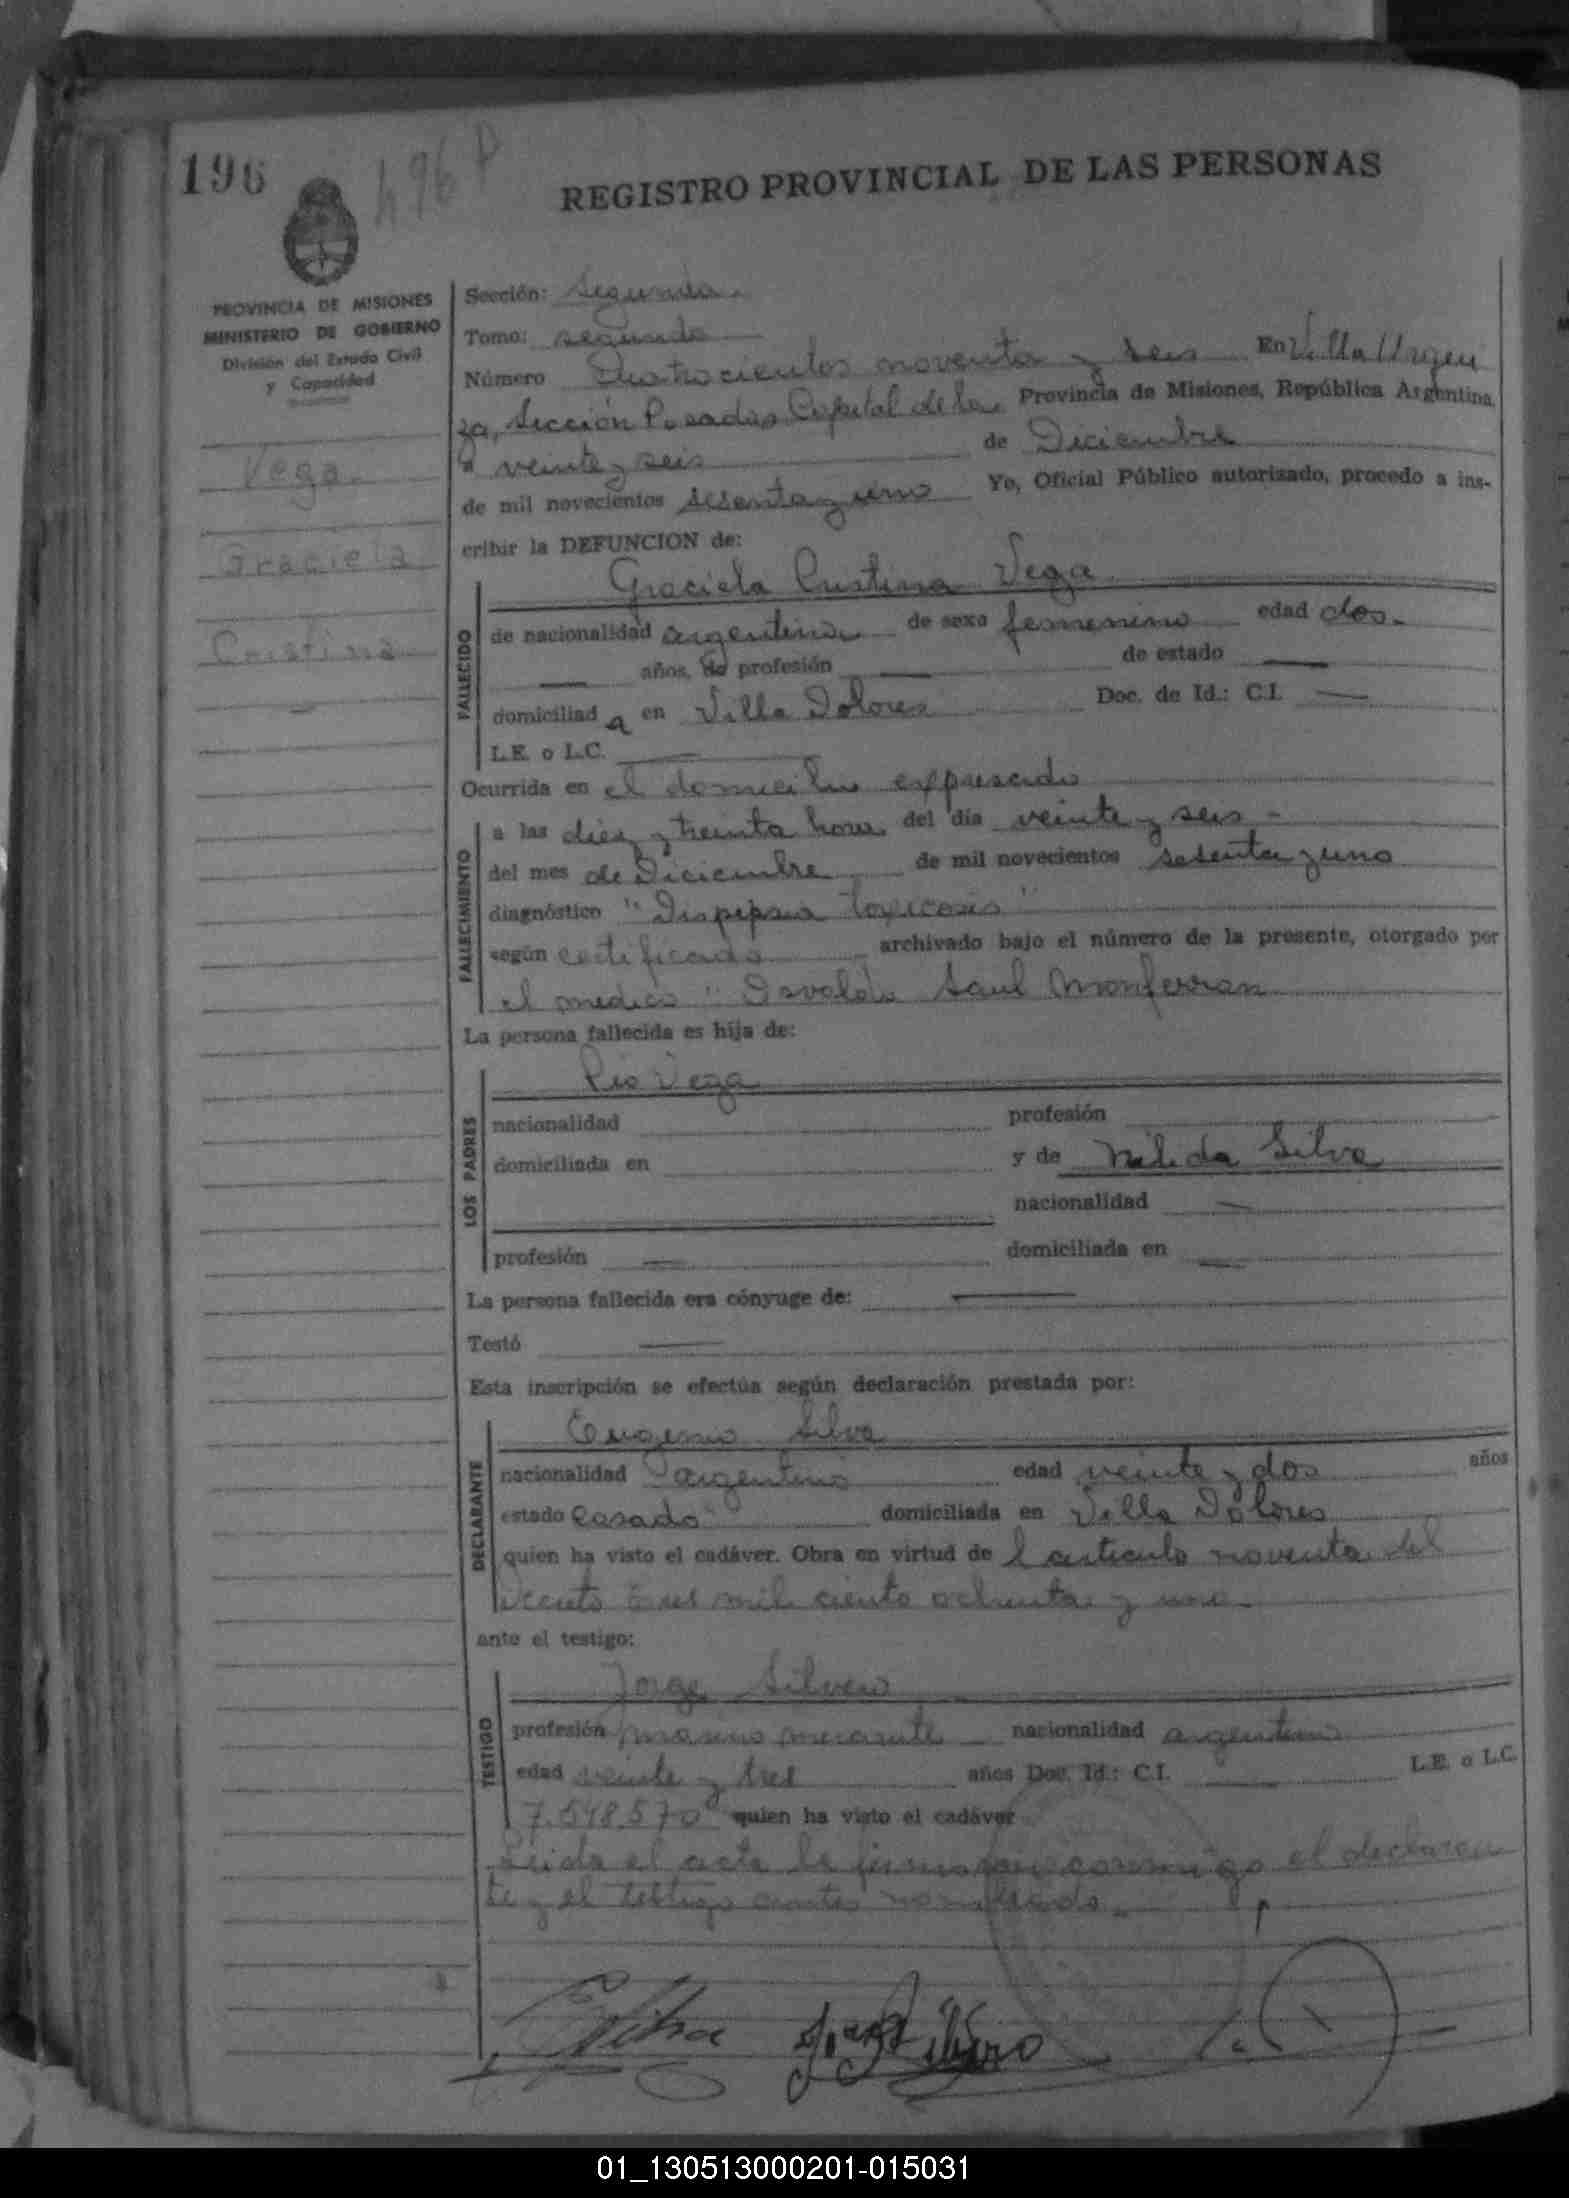 196
496 P
REGISTRO PROVINCIAL DE LAS PERSONAS
PROVINCIA DE MISIONES
MINISTERIO DE GOBIERNO
División del Estado Civil
y Capacidad
Vega.
Graciela
Cristina
Sección: Segunda.
Tomo: segundo
Número Cuatrocientos noventa y seis En Villa Urqui
za, Sección Posadas Capital de la Provincia de Misiones, República Argentina,
a veinte y seis de Diciembre
de mil novecientos sesenta y uno Yo, Oficial Público autorizado, procedo a ins-
cribir la DEFUNCION de:
Graciela Cristina Vega
FALLECIDO
de nacionalidad argentina de sexo femenino edad dos.
— años, de profesión — de estado —
domiciliad a en Villa Dolores Doc. de Id.: C.I. —
L.E. o L.C. —
Ocurrida en el domicilio expresado
FALLECIMIENTO
a las diez y treinta horas del día veinte y seis -
del mes de Diciembre de mil novecientos sesenta y uno
diagnóstico "Dispepsia toxicosis"
según certificado archivado bajo el número de la presente, otorgado por
el medico "Osvaldo Saul Monferran
La persona fallecida es hija de:
LOS PADRES
Pio Vega
nacionalidad profesión
domiciliada en y de Nélida Silva
nacionalidad —
profesión — domiciliada en —
La persona fallecida era cónyuge de: —
Testó —
Esta inscripción se efectúa según declaración prestada por:
DECLARANTE
Eugenio Silva
nacionalidad argentino edad veinte y dos años
estado casado domiciliada en Villa Dolores
quien ha visto el cadáver. Obra en virtud de l articulo noventa del
Decreto tres mil ciento ochenta y uno.
ante el testigo:
TESTIGO
Jorge Silvero
profesión marino mercante nacionalidad argentino
edad veinte y tres años Doc. Id.: C.I. — L.E. o L.C.
7.548.570 quien ha visto el cadáver
Leida el acta la firman conmigo el declaran
te y el testigo antes nombrado.
ESilva Jorge Silvero
01_130513000201-015031